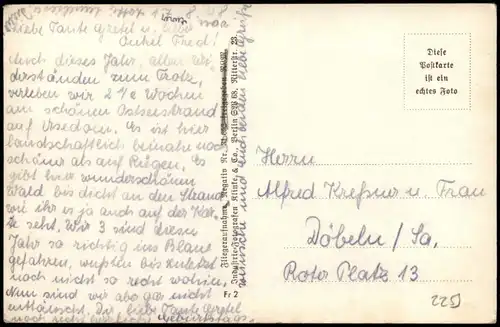 Liebe Tante Gretel u. lieber
Onkel Fred!
Auch dieses Jahr, allen Wi-
derständen zum Trotz,
verleben wir 2 ½ Wochen
am schönen Ostseestrand
auf Usedom. Es ist hier
landschaftlich beinahe noch
schöner als auf Rügen. Es
gibt hier wunderschönen
Wald bis dicht an den Strand
wie ihr es ja auch auf der Kar-
te seht. Wir 3 sind dieses
Jahr so richtig ins Blaue
gefahren, wußten bis zuletzt
noch nicht so recht wohin.
Nun sind wir aber gar nicht
enttäuscht. Dir liebe Tante Gretel
Geburtstags-
wünsche und euch beiden liebe Grüße
Fliegeraufnahme
Industrie-Fotografen Klinke & Co., Berlin SW 68, Ritterstr. 23
Fr 2
Diese
Postkarte
ist ein
echtes Foto
Herrn
Alfred Kreßner u. Frau
Döbeln / Sa.
Roter Platz 13
225